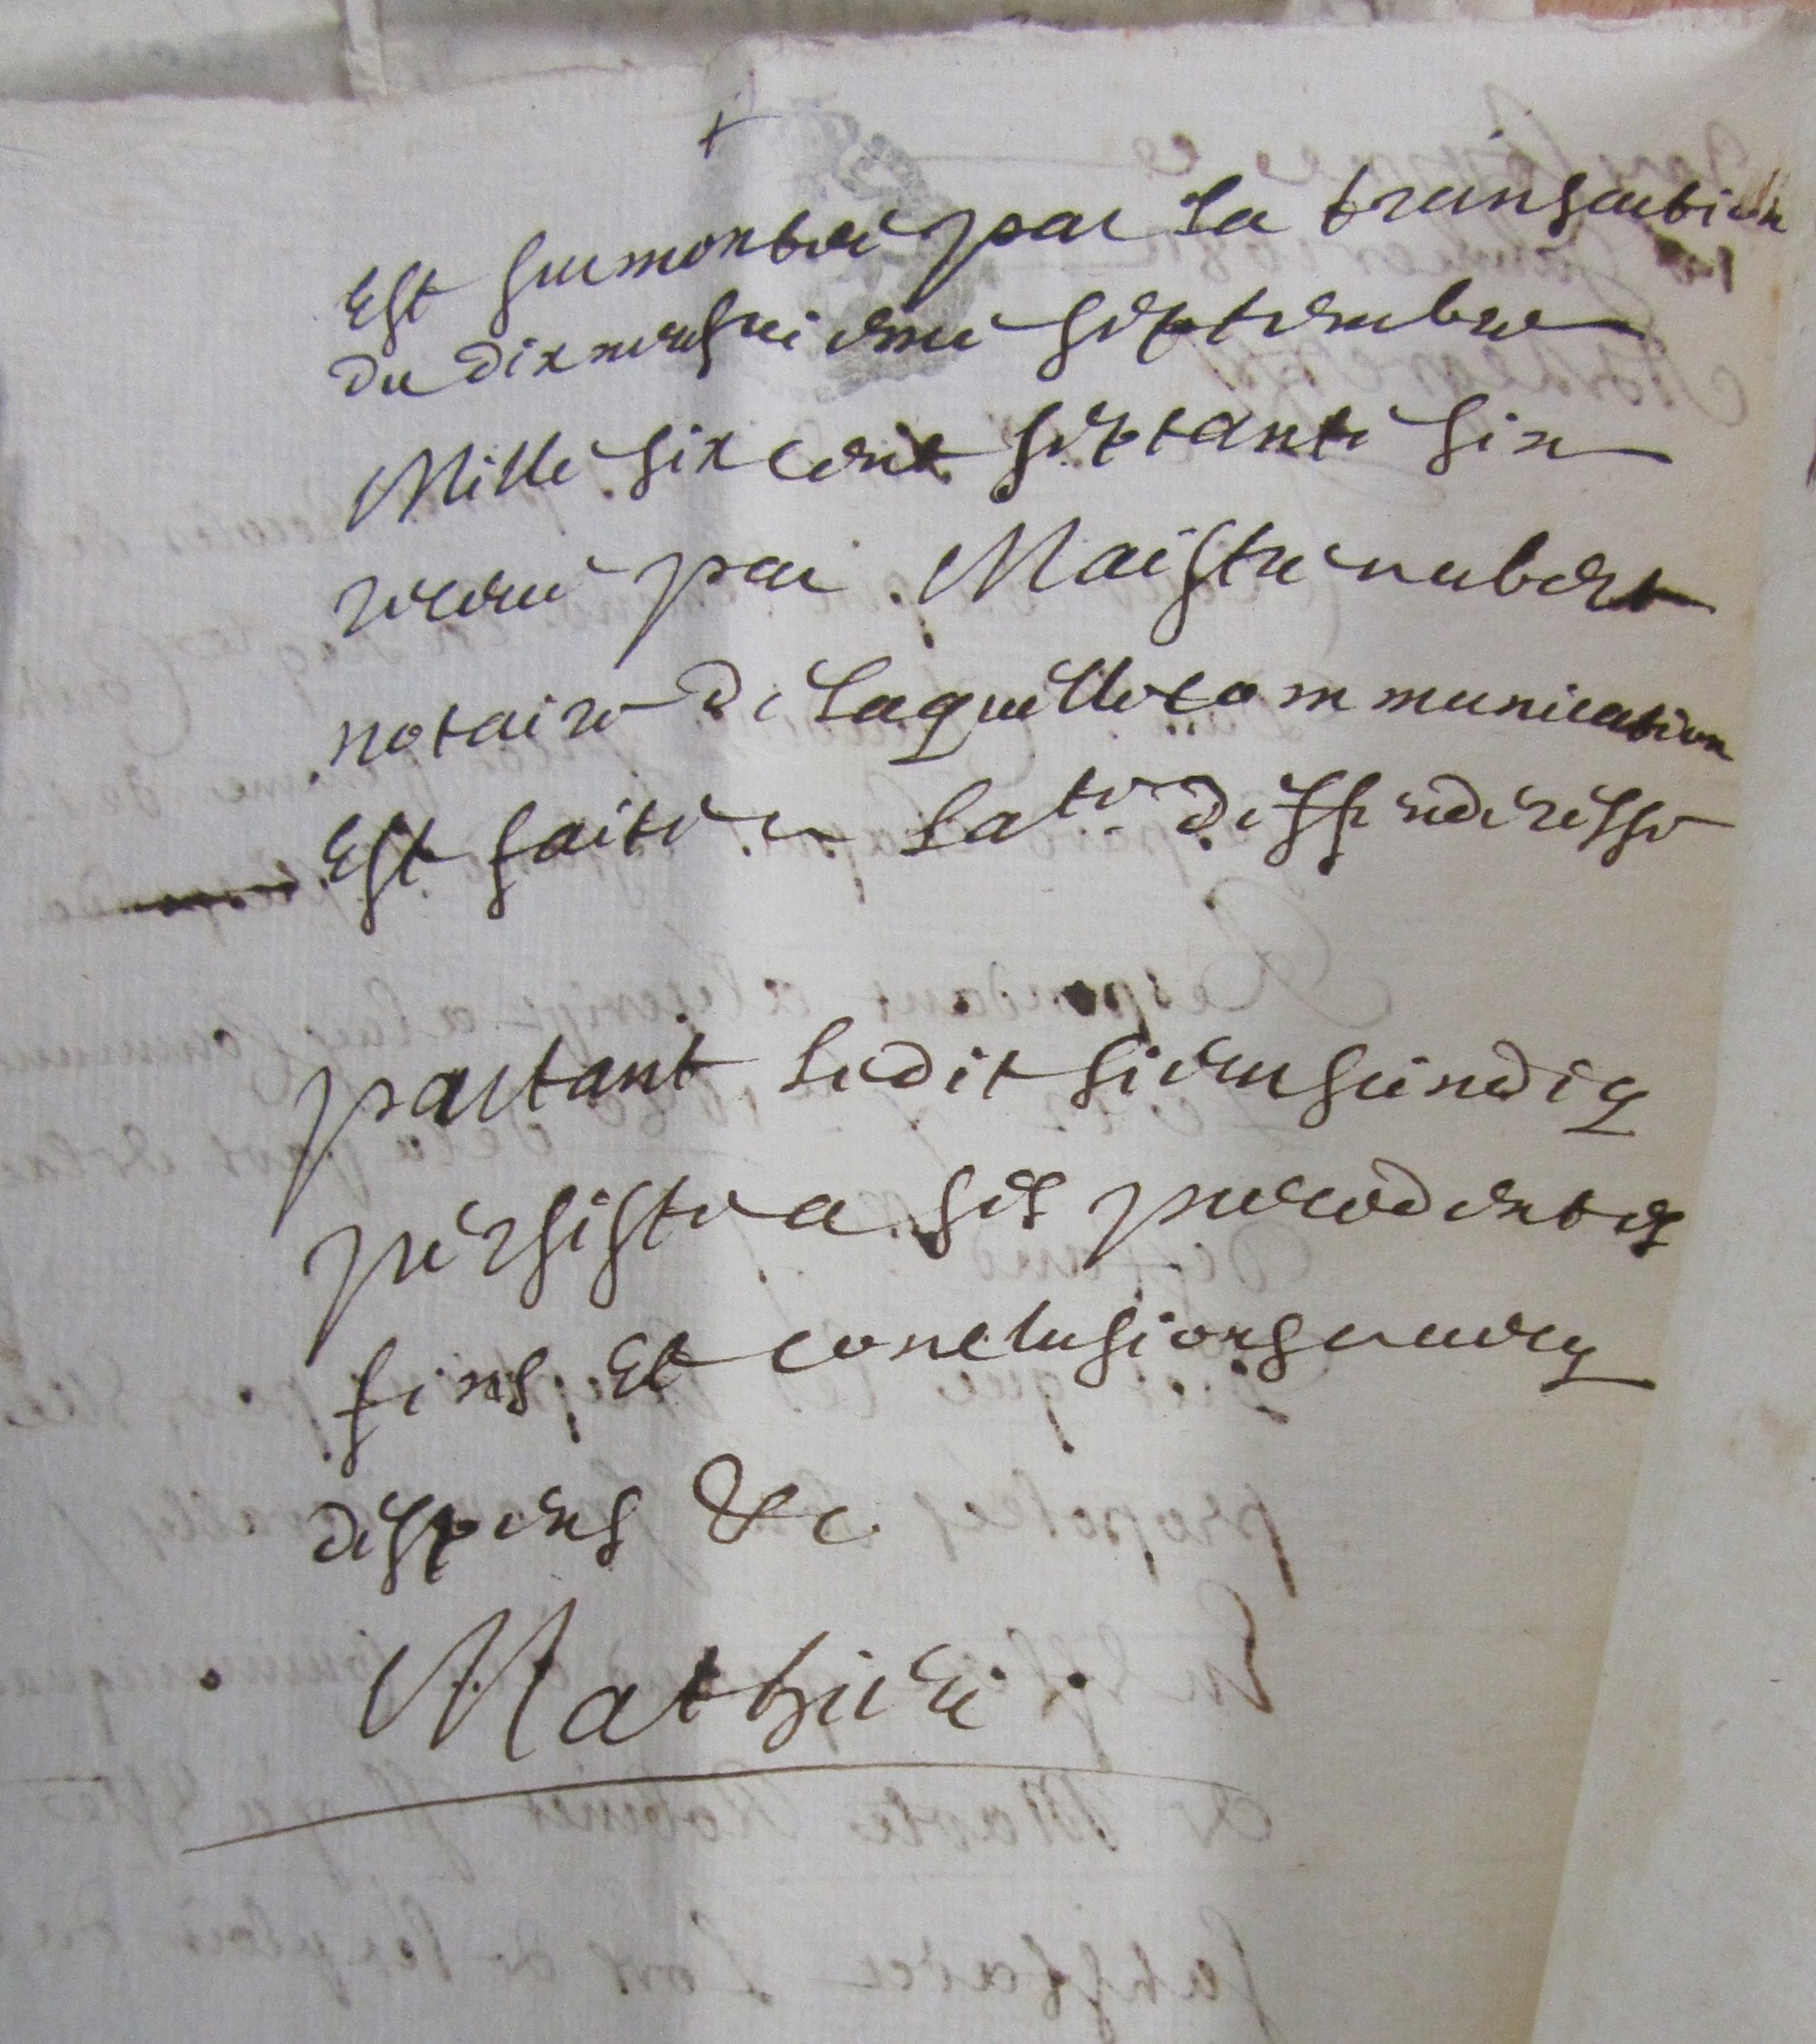 Est surmontée par la transaction
du dixneufvieme septembre
Mille six cent septante six
receue par Maistre aubert
notaire de laquelle communication
Est faite a la te deffenderesse
partant ledit sieur sindiq
persiste a ses precedentes
fins Et conclusions avecq
despens &c
Mathieu